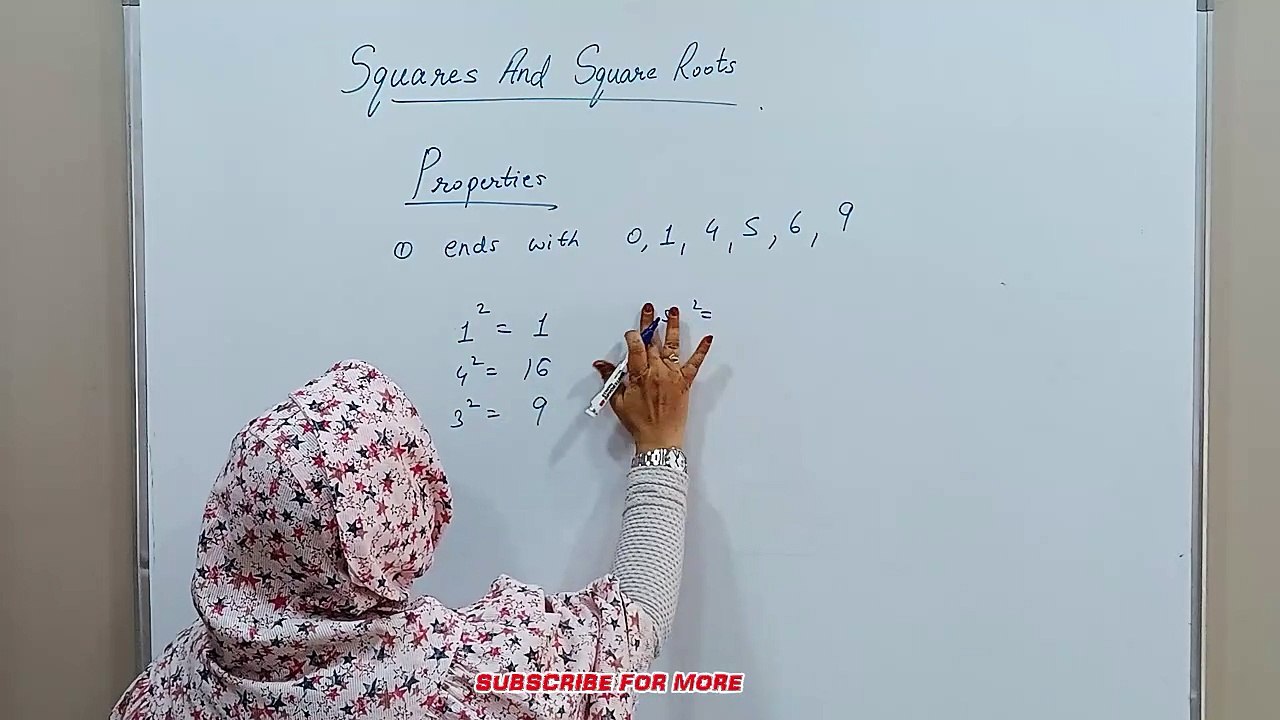 Squares And Square Roots
Properties
① ends with 0, 1, 4, 5, 6, 9
1² = 1
4² = 16
3² = 9
² =
SUBSCRIBE FOR MORE